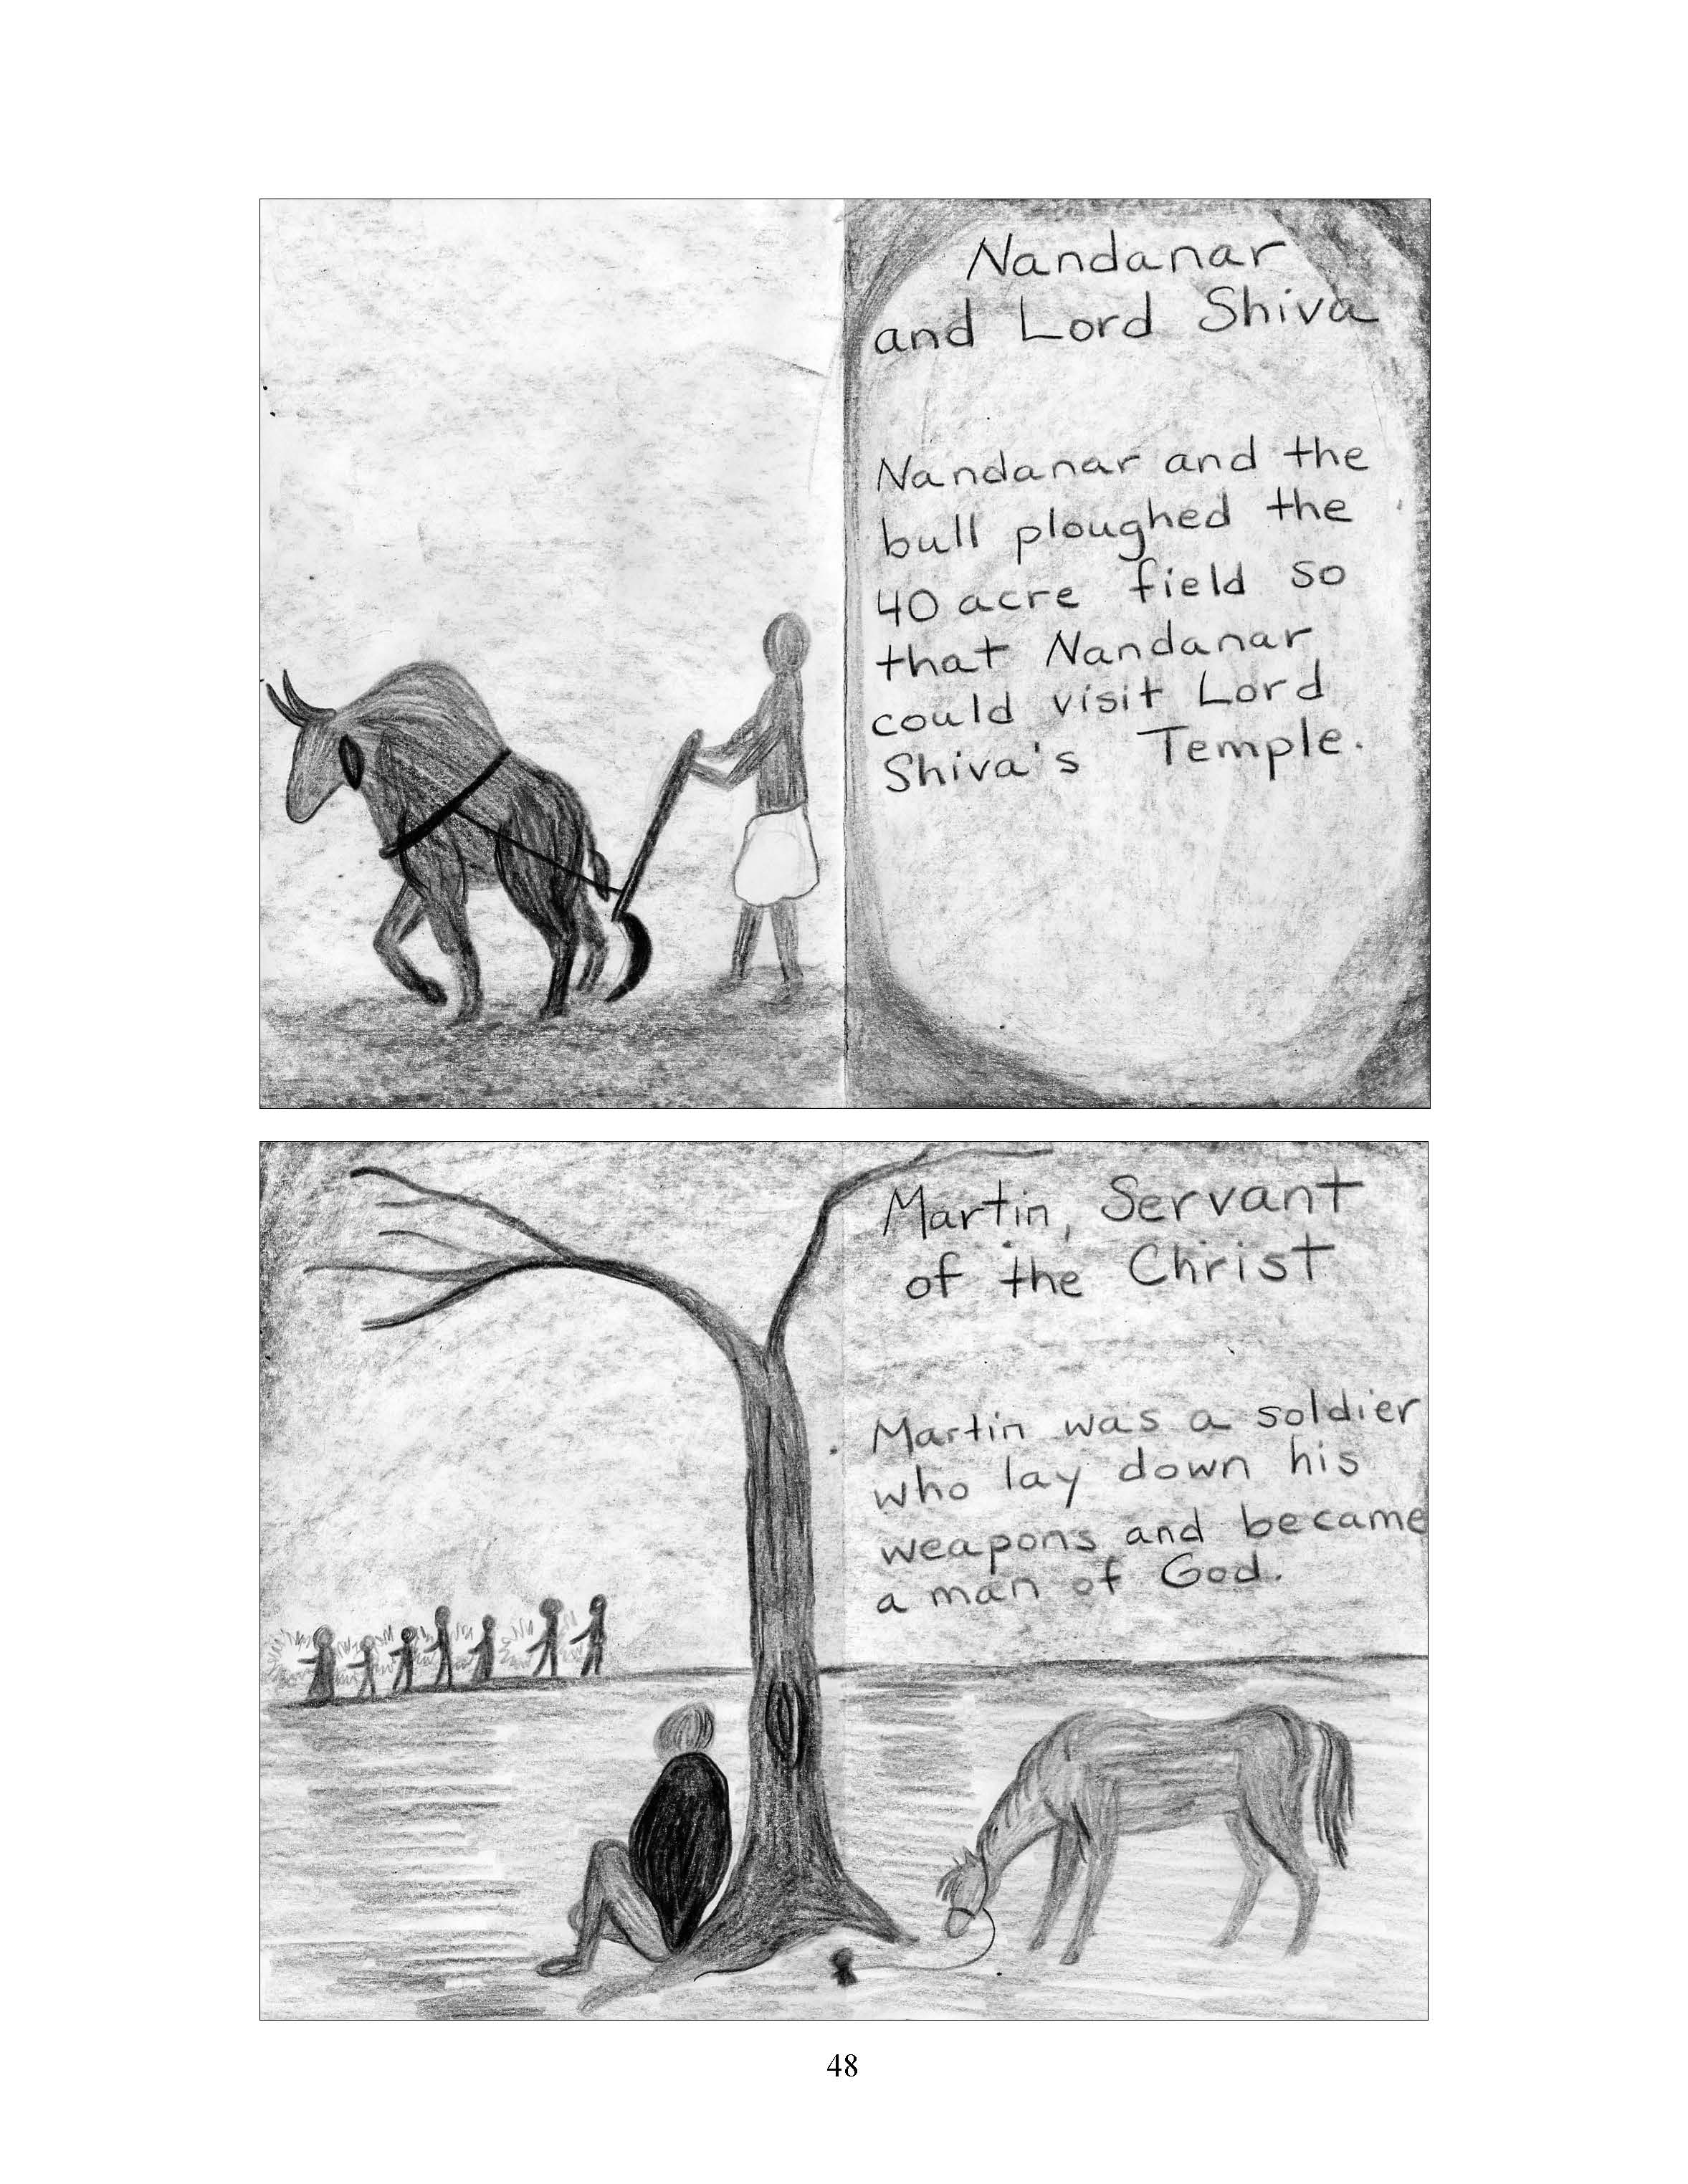 Nandanar
and Lord Shiva
Nandanar and the
bull ploughed the
40 acre field so
that Nandanar
could visit Lord
Shiva's Temple.
Martin, Servant
of the Christ
Martin was a soldier
who lay down his
weapons and became
a man of God.
48